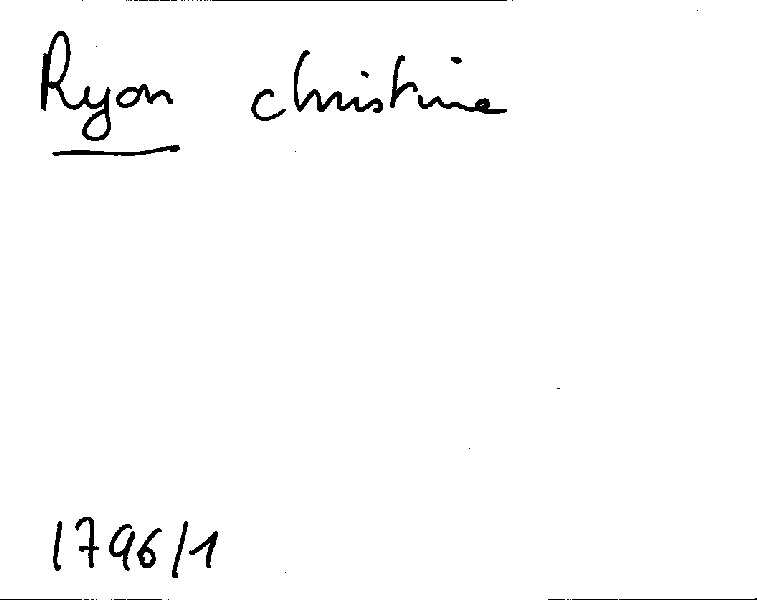 Ryon christine
1796/1